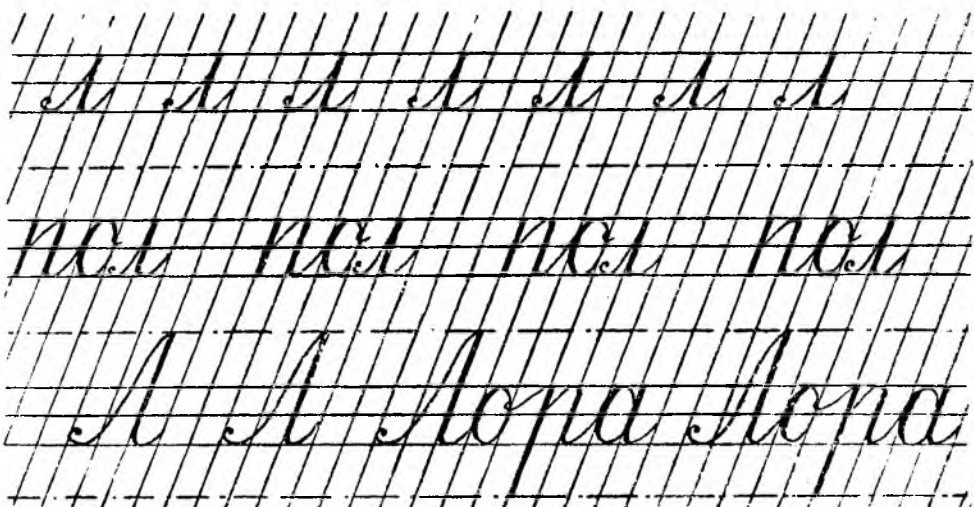 л л л л л л л
пол пол пол пол
Л Л Лора Лора